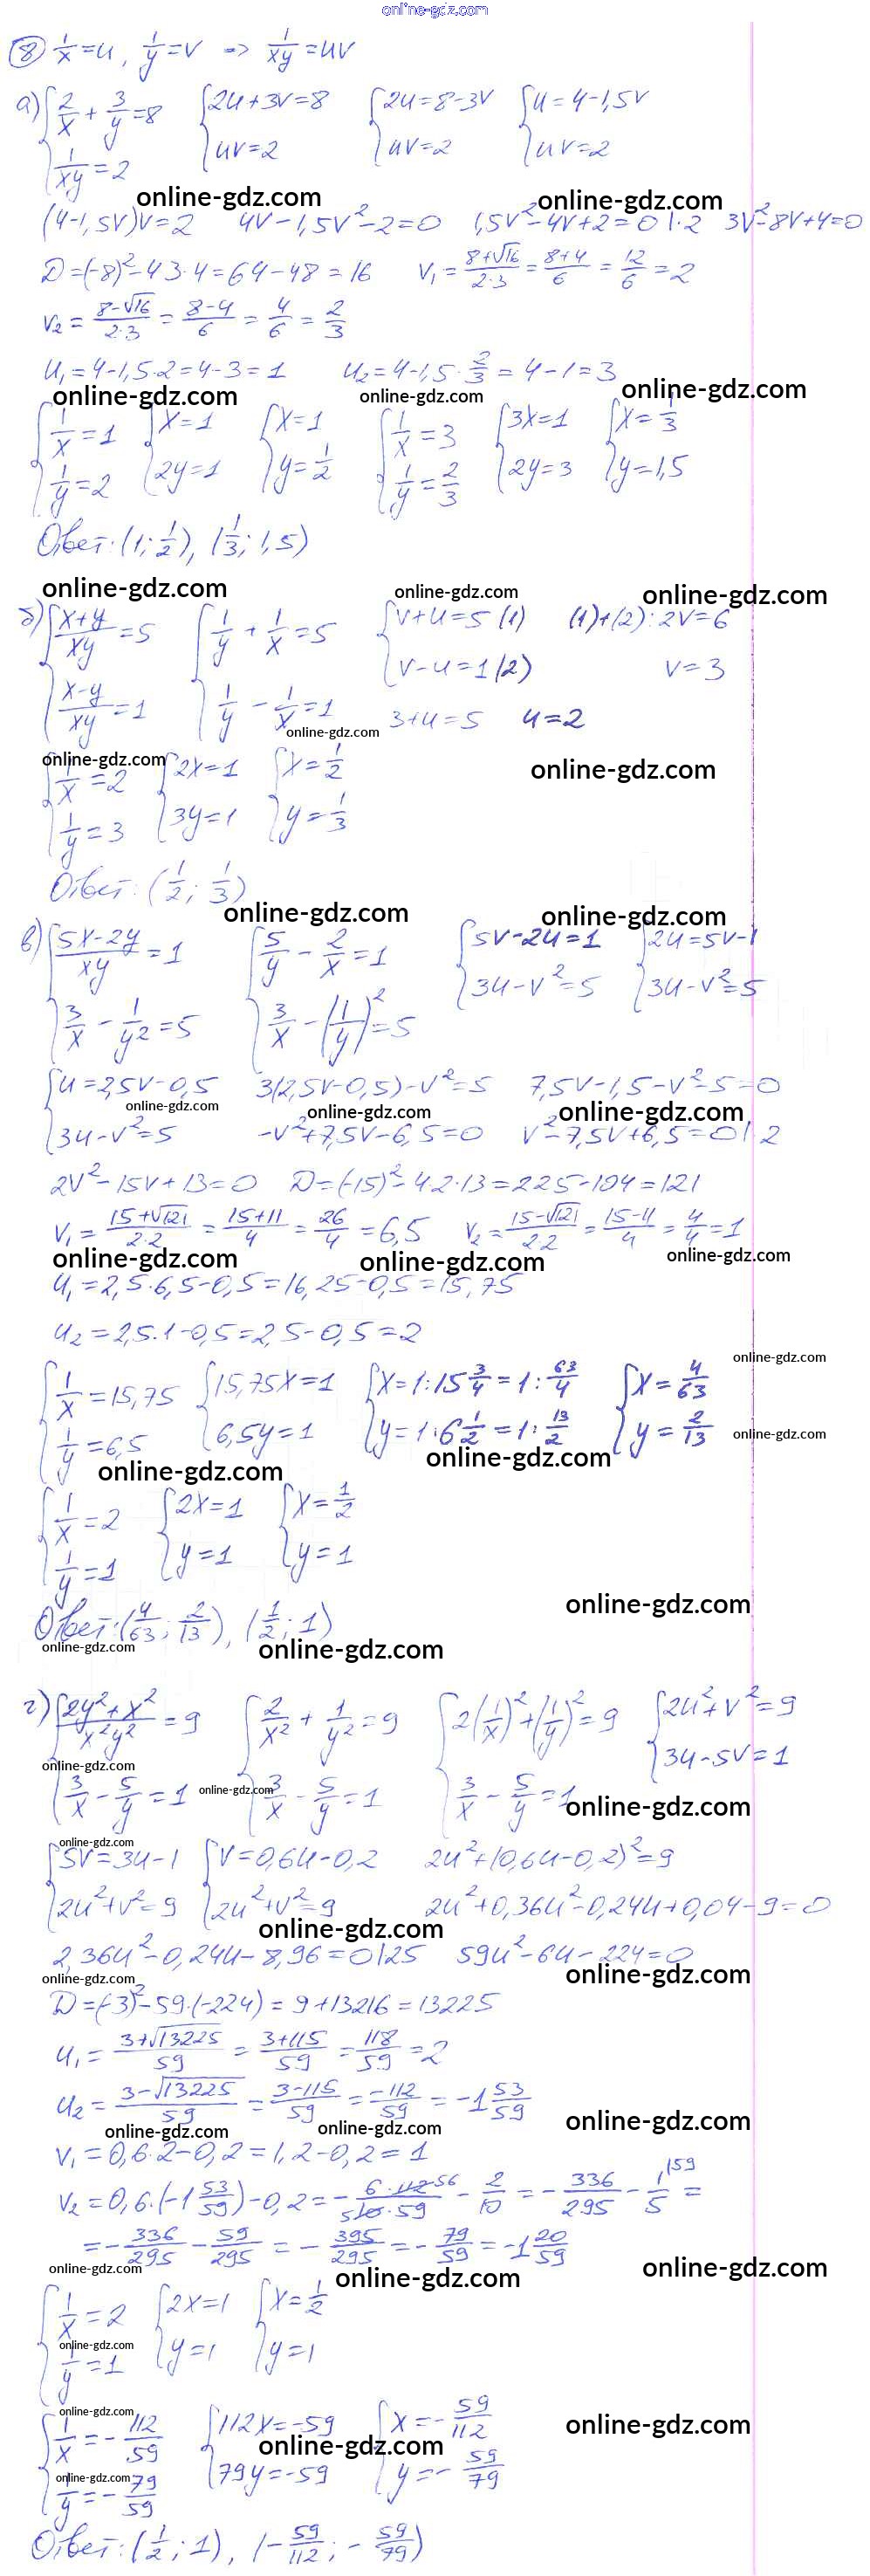 online-gdz.com
⑧ 1/x=u, 1/y=v => 1/xy=uv
а) {2/x+3/y=8 {2u+3v=8 {2u=8-3v {u=4-1,5v
{1/xy=2 {uv=2 {uv=2 {uv=2
online-gdz.com online-gdz.com
(4-1,5v)v=2 4v-1,5v²-2=0 1,5v²-4v+2=0 |·2 3v²-8v+4=0
D=(-8)²-4·3·4=64-48=16 v₁=(8+√16)/(2·3)=(8+4)/6=12/6=2
v₂=(8-√16)/(2·3)=(8-4)/6=4/6=2/3
u₁=4-1,5·2=4-3=1 u₂=4-1,5·2/3=4-1=3
online-gdz.com online-gdz.com online-gdz.com
{1/x=1 {x=1 {x=1 {1/x=3 {3x=1 {x=1/3
{1/y=2 {2y=1 {y=1/2 {1/y=2/3 {2y=3 {y=1,5
Ответ: (1; 1/2), (1/3; 1,5)
online-gdz.com online-gdz.com online-gdz.com
б) {(x+y)/xy=5 {1/y+1/x=5 {v+u=5 (1) (1)+(2): 2v=6
{(x-y)/xy=1 {1/y-1/x=1 {v-u=1 (2) v=3
3+u=5 u=2
online-gdz.com
online-gdz.com online-gdz.com
{1/x=2 {2x=1 {x=1/2
{1/y=3 {3y=1 {y=1/3
Ответ: (1/2; 1/3)
online-gdz.com online-gdz.com
в) {(5x-2y)/xy=1 {5/y-2/x=1 {5v-2u=1 {2u=5v-1
{3/x-1/y²=5 {3/x-(1/y)²=5 {3u-v²=5 {3u-v²=5
{u=2,5v-0,5 3(2,5v-0,5)-v²=5 7,5v-1,5-v²-5=0
online-gdz.com online-gdz.com online-gdz.com
{3u-v²=5 -v²+7,5v-6,5=0 v²-7,5v+6,5=0 |·2
2v²-15v+13=0 D=(-15)²-4·2·13=225-104=121
v₁=(15+√121)/(2·2)=(15+11)/4=26/4=6,5 v₂=(15-√121)/(2·2)=(15-11)/4=4/4=1
online-gdz.com online-gdz.com online-gdz.com
u₁=2,5·6,5-0,5=16,25-0,5=15,75
u₂=2,5·1-0,5=2,5-0,5=2
online-gdz.com
{1/x=15,75 {15,75x=1 {x=1:15 3/4=1:63/4 {x=4/63
{1/y=6,5 {6,5y=1 {y=1:6 1/2=1:13/2 {y=2/13
online-gdz.com
online-gdz.com online-gdz.com
{1/x=2 {2x=1 {x=1/2
{1/y=1 {y=1 {y=1
online-gdz.com
Ответ: (4/63; 2/13), (1/2; 1)
online-gdz.com online-gdz.com
г) {(2y²+x²)/x²y²=9 {2/x²+1/y²=9 {2(1/x)²+(1/y)²=9 {2u²+v²=9
{3/x-5/y=1 {3/x-5/y=1 {3/x-5/y=1 {3u-5v=1
online-gdz.com online-gdz.com online-gdz.com
online-gdz.com
{5v=3u-1 {v=0,6u-0,2 2u²+(0,6u-0,2)²=9
{2u²+v²=9 {2u²+v²=9 2u²+0,36u²-0,24u+0,04-9=0
online-gdz.com
2,36u²-0,24u-8,96=0 |·25 59u²-6u-224=0
online-gdz.com online-gdz.com
D=(-3)²-59·(-224)=9+13216=13225
u₁=(3+√13225)/59=(3+115)/59=118/59=2
u₂=(3-√13225)/59=(3-115)/59=-112/59=-1 53/59
online-gdz.com online-gdz.com online-gdz.com
v₁=0,6·2-0,2=1,2-0,2=1
v₂=0,6·(-1 53/59)-0,2=-(6·112 56)/(5 10·59)-2/10=-336/295-1/5 |59=
=-336/295-59/295=-395/295=-79/59=-1 20/59
online-gdz.com online-gdz.com online-gdz.com
{1/x=2 {2x=1 {x=1/2
online-gdz.com
{1/y=1 {y=1 {y=1
online-gdz.com online-gdz.com
{1/x=-112/59 {112x=-59 {x=-59/112
online-gdz.com
online-gdz.com
{1/y=-79/59 {79y=-59 {y=-59/79
Ответ: (1/2; 1), (-59/112; -59/79)